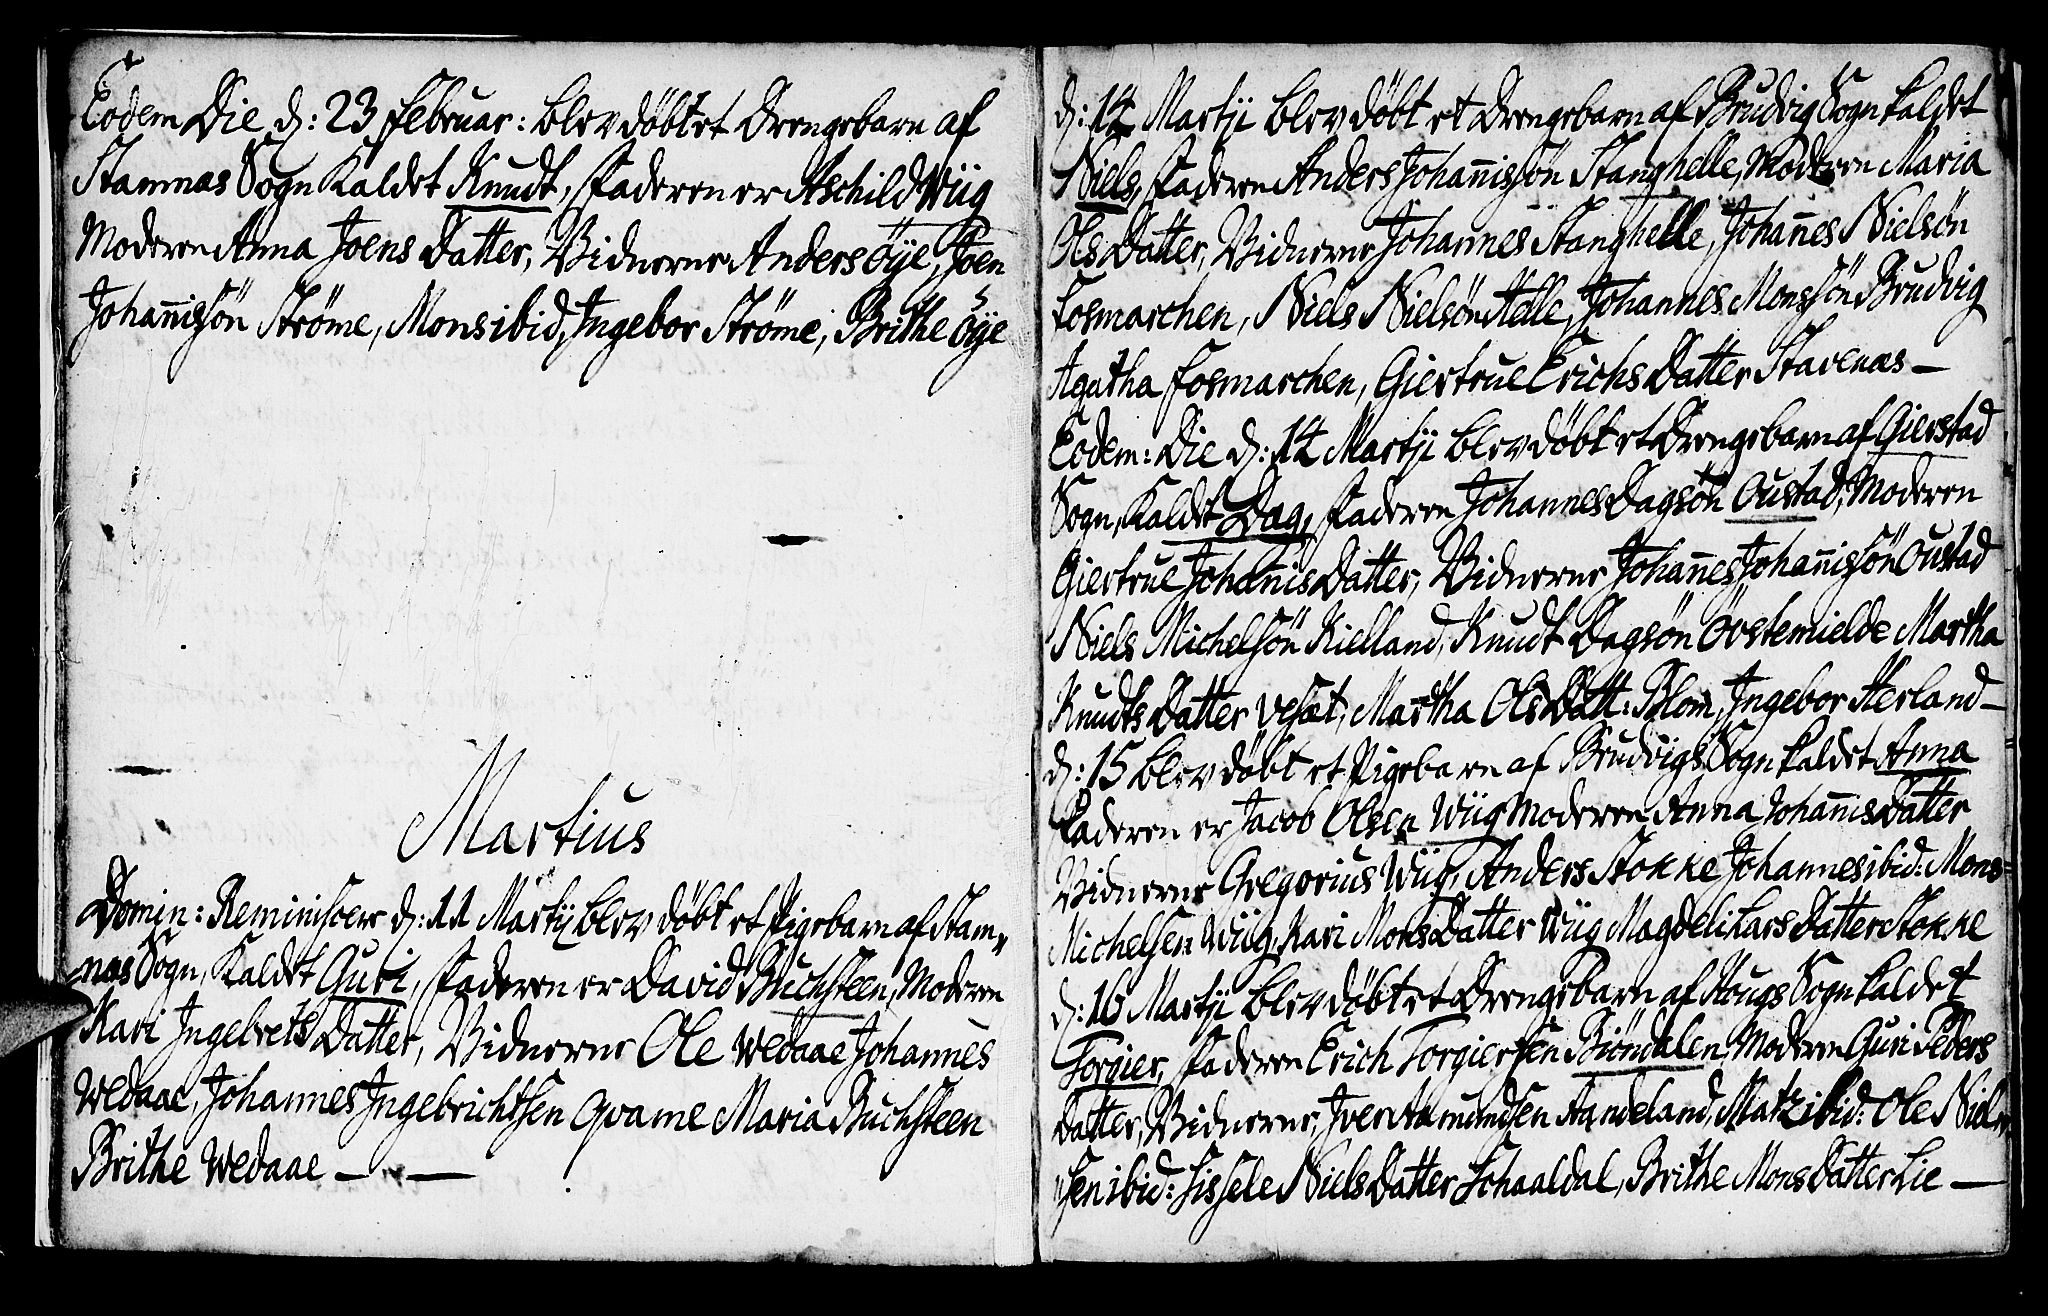 Eodem Die d: 23 Februar: blev döbt et Drengebarn af
Stamnas Sogn Kaldet Knudt, Faderen er Aschild Wiig
Moderen Anna Joens Datter, Vidnerne Anders Öÿe, Joen
Johan̄isSön Ströme, Mons ibid, Ingebor Ströme, Brithe Öÿe
Martius
Domin: Reminiscere d: 11 Martÿ blev döbt et Pigebarn af Stam„
nas Sogn, Kaldet Guri, Faderen er David Buchsteen, Moderen
Kari Ingebrets Datter, Vidnerne Ole Wedaae Johannes
Wedaae, Johannes Ingebrichtsen Qvame Maria Buchsteen
Brithe Wedaae —
d: 14 Martÿ blev döbt et Drengebarn af Brudvig Sogn kaldet
Niels, Faderen Anders Johan̄isSön Stanghelle, Moderen Maria
Ols Datter, Vidnerne Johannes Stanghelle, Johan̄es Nielsön
Fosmarchen, Niels Nielsön Helle, Johannes MonsSön Brudvig
Agatha Fosmarchen, Giertrue Erichs Datter Stavenas —
Eodem: Die d: 14 Martÿ blev döbt et Drengebarn af Gierstad
Sogn, Kaldet Dag, Faderen Johannes Dagsön Oustad, Moderen
Giertrue Johan̄is Datter, Vidnerne Johan̄es Johan̄isSön Oustad
Niels Michelsön Kielland, Knudt Dagsön Övstemielde Martha
Knudts Datter Vesæt, Martha Ols Datt: Blom, Ingebor Herland —
d: 15 blev döbt et Pigebarn af Brudvigs Sogn kaldet Anna
Faderen er Jacob Olsen Wiig Moderen Anna Johan̄is Datter
Vidnerne Gregorius Wiig, Anders Stokke Johannes ibid: Mons
Michelsen Wiig, Kari Mons Datter Wiig Magdeli Lars Datter Stokke
d: 16 Martÿ blev döbt et Drengebarn af Hougs Sogn kaldet
Torgier, Faderen Erich Torgiersen Biöndalen, Moderen Guri Peders
Datter, Vidnerne, Iver Amundsen Aandeland, Matz ibid: Ole Niel„
„sen ibid: Sissele Niels Datter Schaaldal, Brithe Mons Datter Lie —